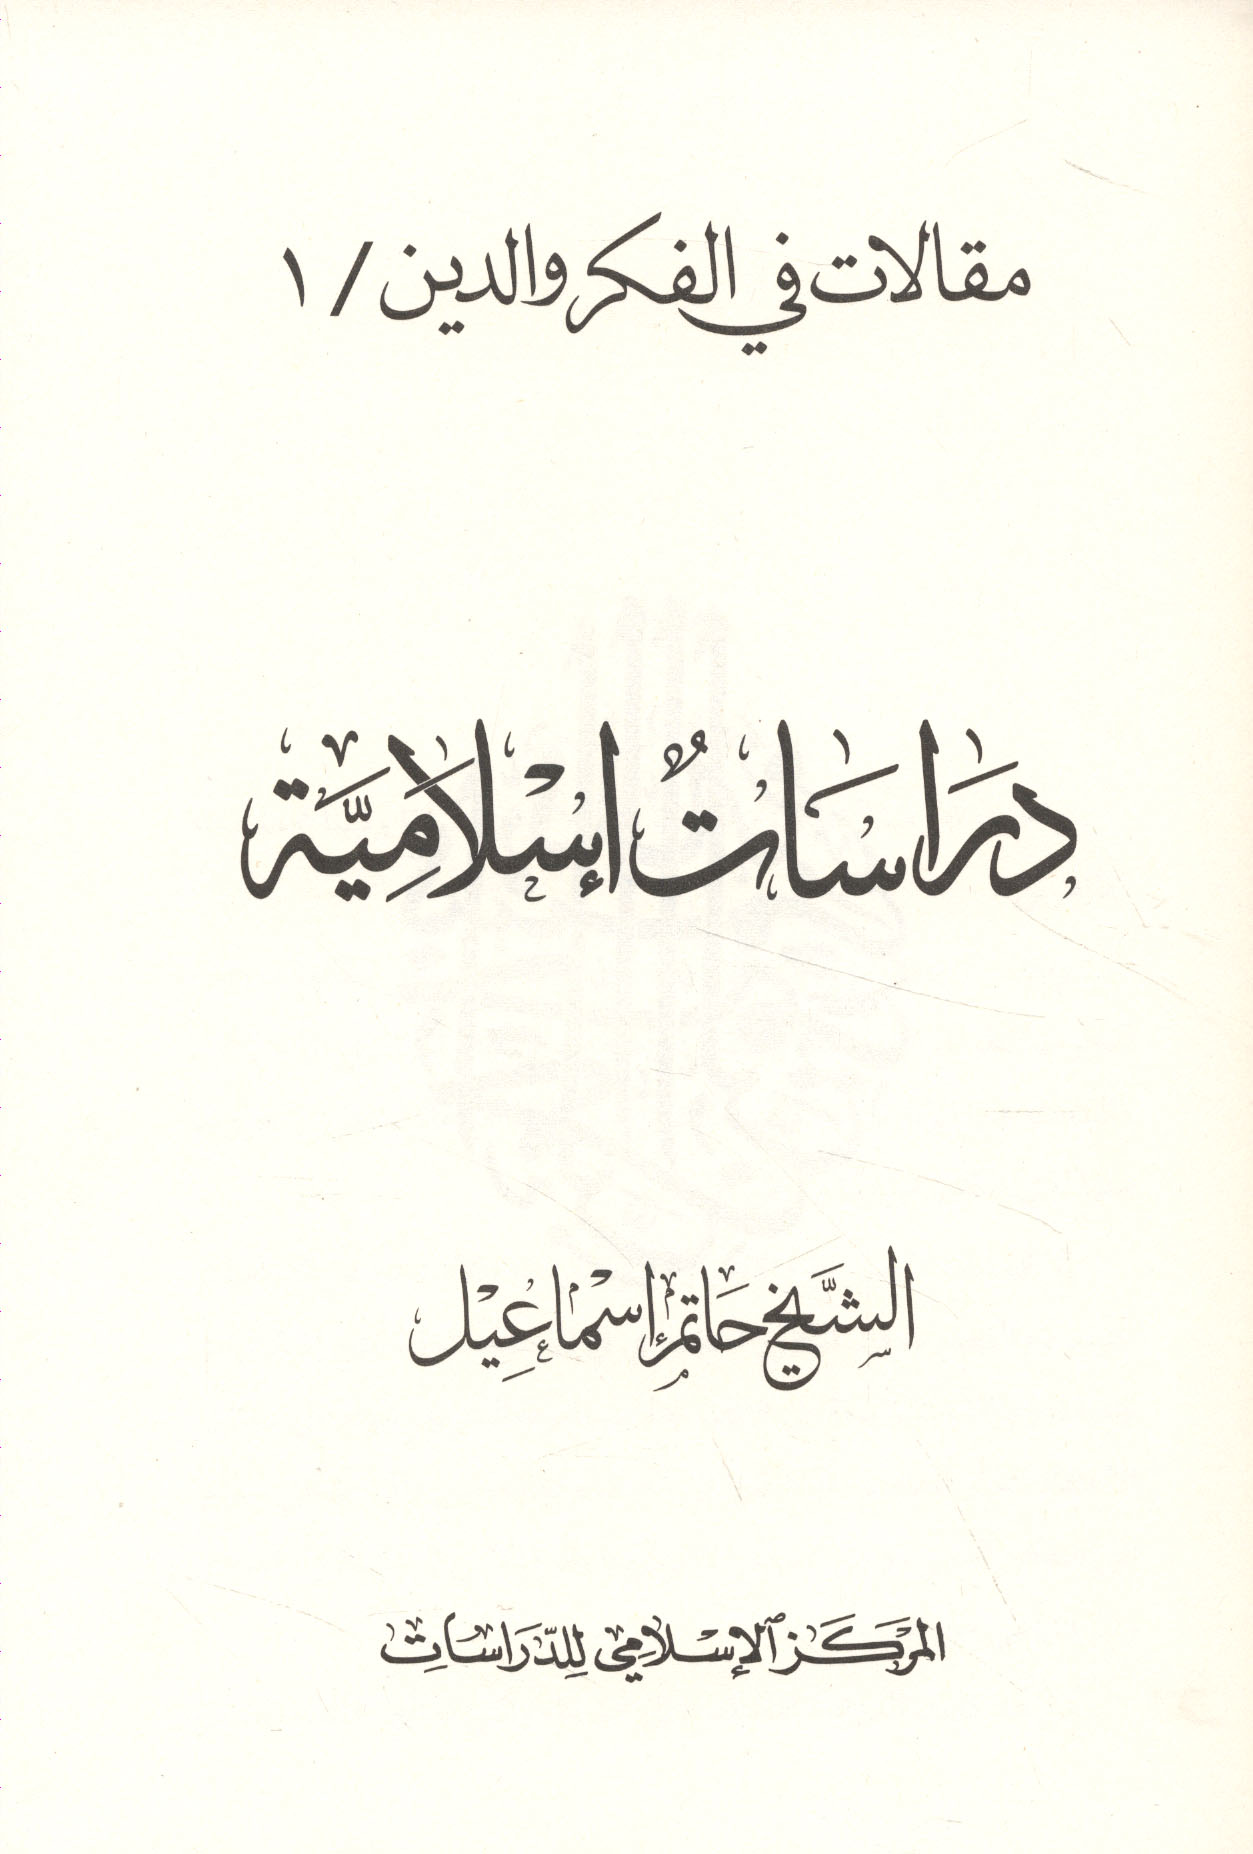 مقالات في الفكر والدين / ١
دِرَاسَاتٌ إِسْلَامِيَّة
الشَّيخ حَاتم إِسْمَاعِيْل
المَرْكَز الإِسْلَامِي لِلدِّرَاسَاتِ